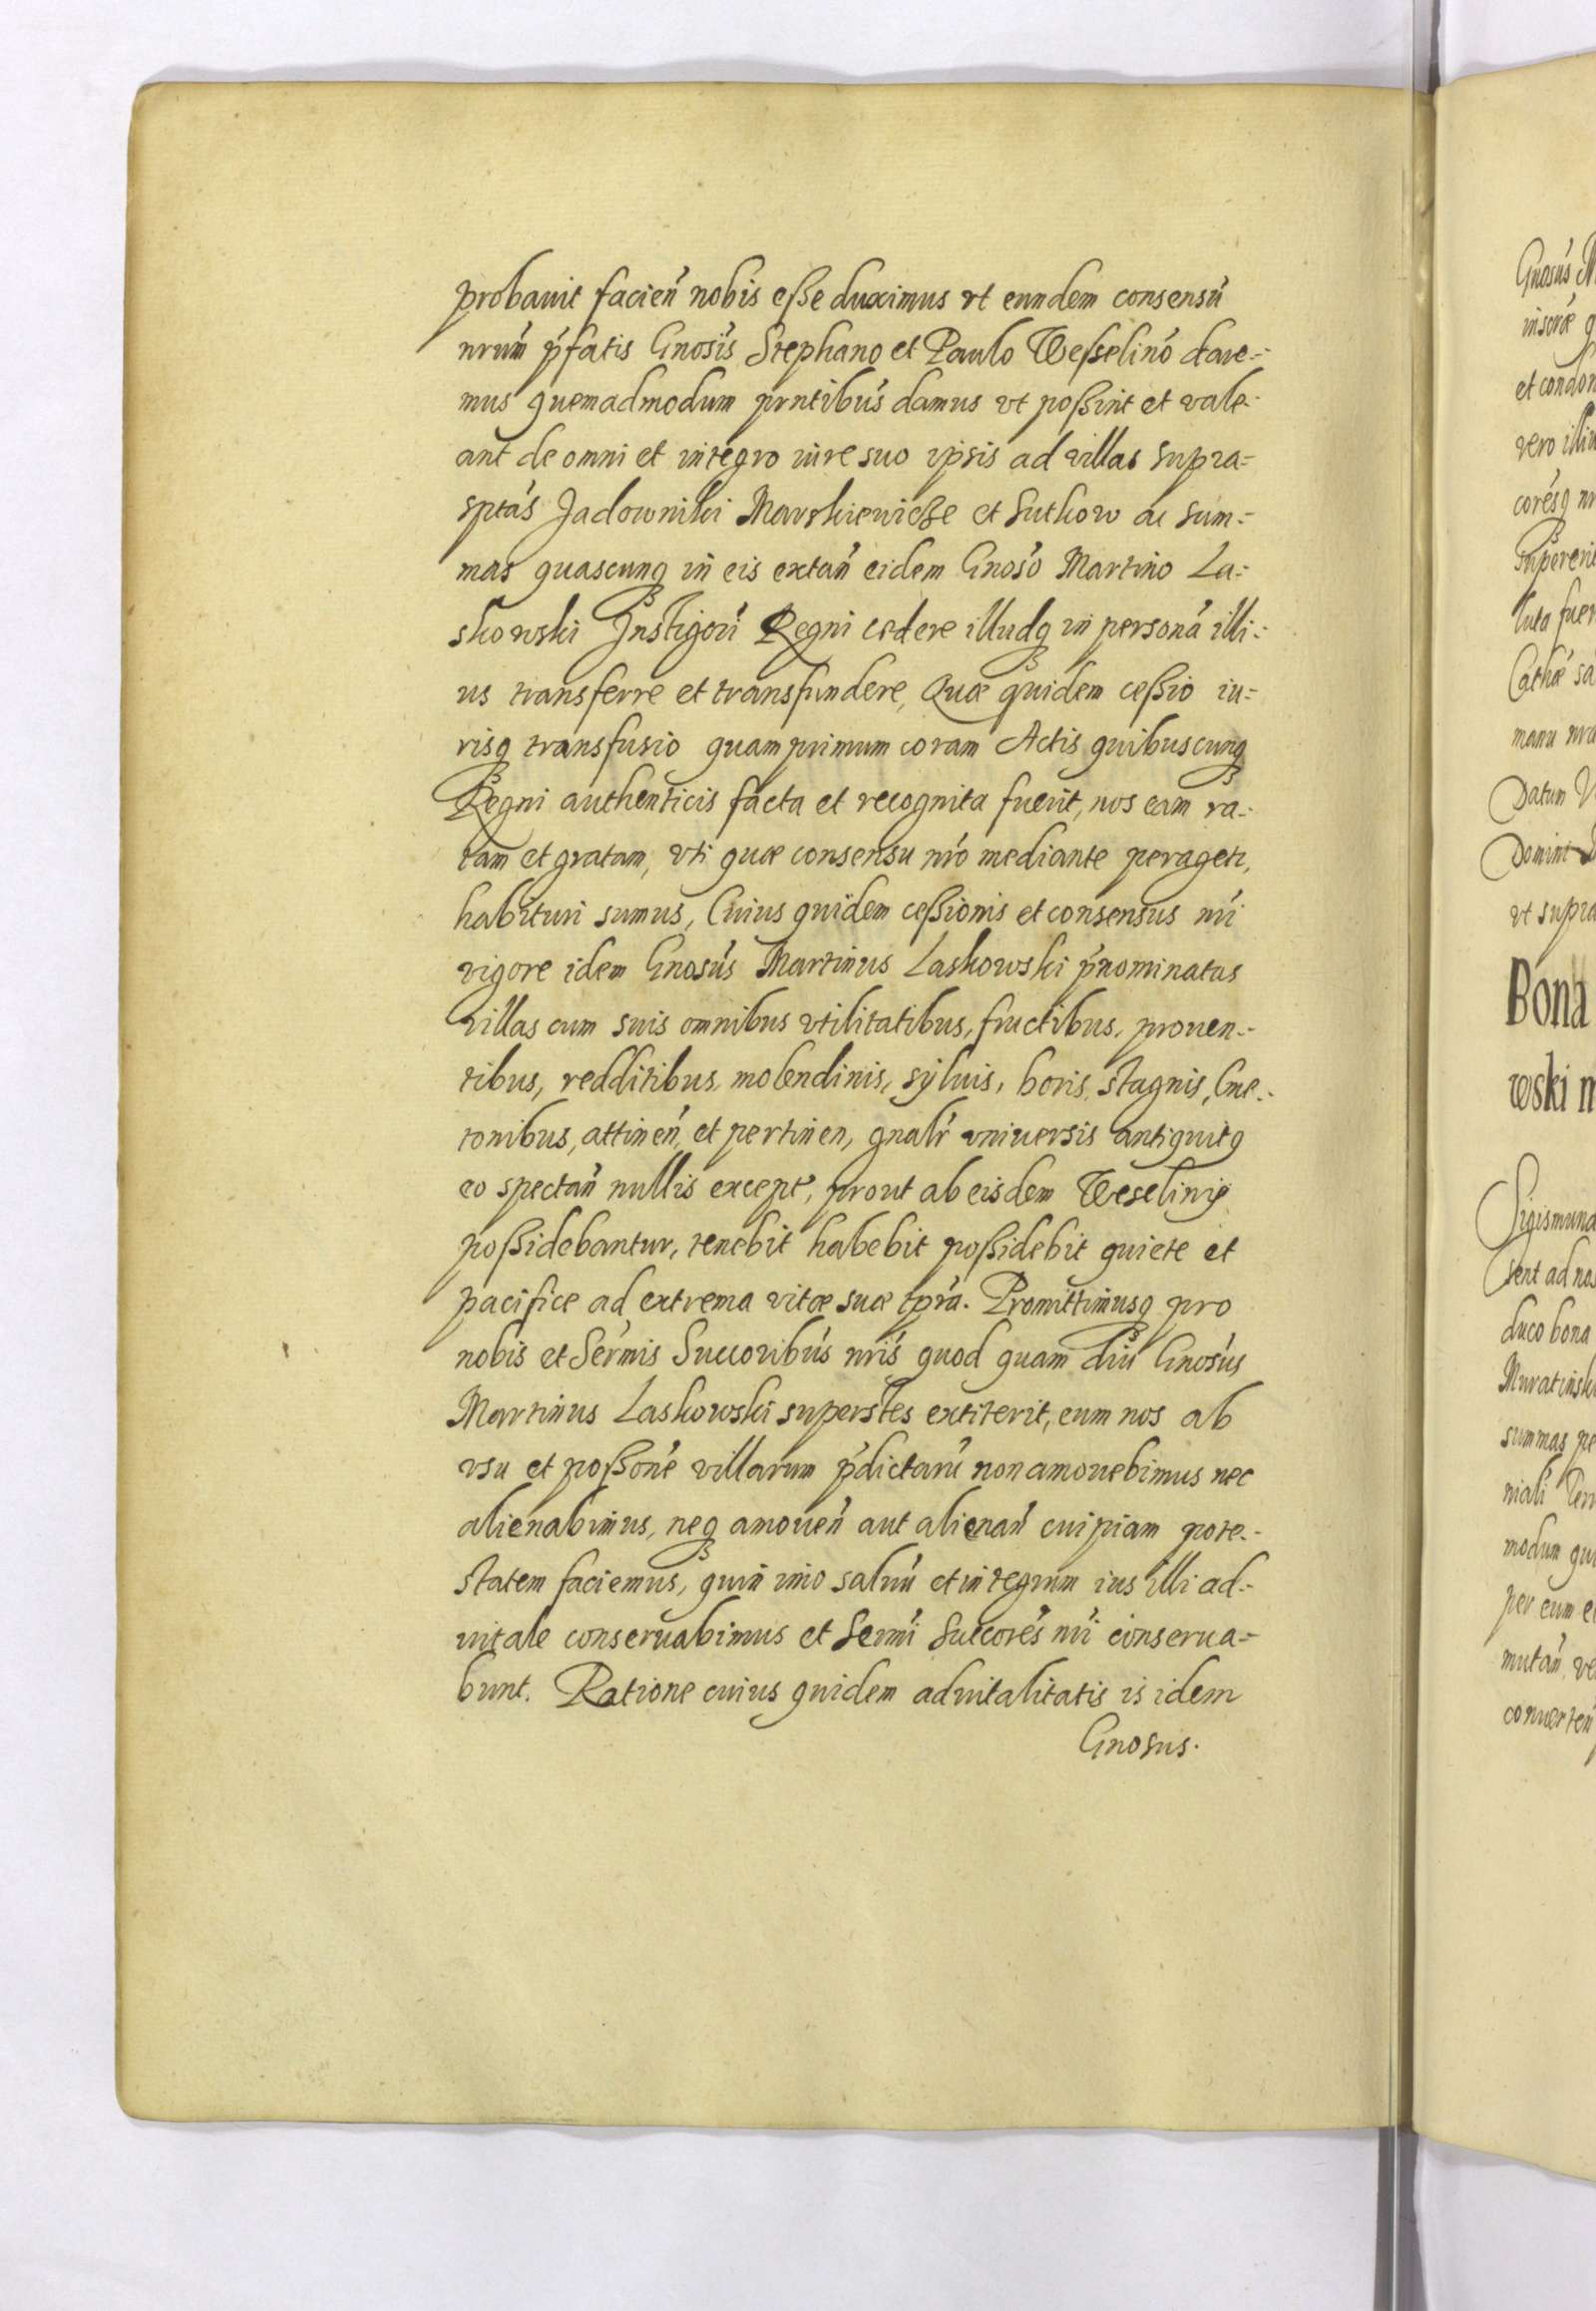 probauit facień nobis eße duximus vt eundem consensū
nrūm p̄fatis Gnosis Stephano et Paulo Weßelino dare-
mus quemadmodum prntibus damus vt poßint et vale-
ant de omni et integro iure suo ipsis ad villas supra-
sptas Jadowniki Marskiewicze et Sutkow ac sum-
mas quascunq in eis extań eidem Gnoso Martino La-
skowski Jnstigori Regni cedere illudq in personā illi-
us transferre et transfundere, Quæ quidem ceßio iu-
risq transfusio quamprimum coram Actis quibuscunq
Regni authenticis facta et recognita fuerit, nos eam ra-
tam et gratam, vti quæ consensu nro mediante peragetr,
habituri sumus, Cuius quidem ceßionis et consensus nri
vigore idem Gnosus Martinus Laskowski p̄nominatas
villas cum suis omnibus vtilitatibus, fructibus, prouen-
tibus, redditibus, molendinis, syluis, boris, stagnis, Cme-
tonibus, attineń, et pertinen, gnalr vniuersis antiquitq
eo spectań nullis except, prout ab eisdem Weselinis
poßidebantur, tenebit habebit poßidebit quiete et
pacifice ad extrema vitæ suæ tpra. Promittimusq pro
nobis et Sermis Succoribus nris quod quam diu Gnosus
Martinus Laskowski superstes extiterit, eum nos ab
vsu et poßone villarum p̄dictarū non amouebimus nec
alienabimus, neq amoueń aut alienań cuipiam pote-
statem faciemus, quin imo saluū et integrum ius illi ad-
uitale conseruabimus et Sermi Succores nri conserua-
bunt. Ratione cuius quidem aduitalitatis is idem
Gnosus.
Bona
wski